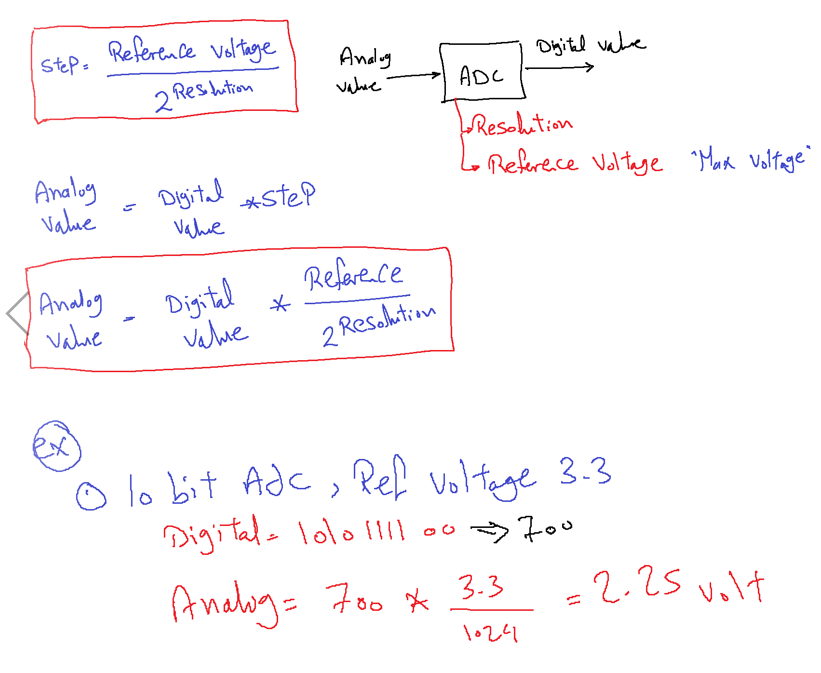 SteP = Reference Voltage / 2^Resolution
Analog Value
ADC
Digital Value
Resolution
Reference Voltage "Max Voltage"
Analog Value = Digital Value * SteP
Analog Value = Digital Value * Reference / 2^Resolution
ex
① 10 bit Adc, Ref Voltage 3.3
Digital = 1010111100 ⇒ 700
Analog = 700 * 3.3 / 1024 = 2.25 volt